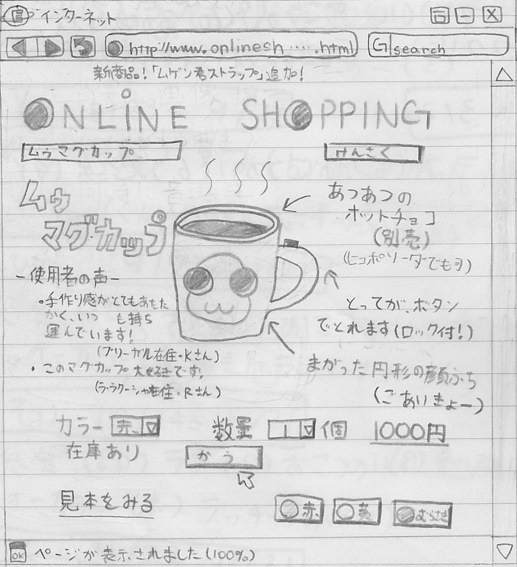 インターネット
http://www.onlinesh ‥‥.html
G search
新商品!「ムゲン君ストラップ」追加!
ONLINE SHOPPING
ムゥマグカップ
けんさく
ムゥ
マグカップ
あつあつの
ホットチョコ
(別売)
-使用者の声-
・手作り感がとてもあたた
かく、いつも持ち
運んでいます!
(ブリーガル在住・Kさん)
・このマグカップ大好きです!
(ラ・ラクーシャ在住・Rさん)
とってが、ボタン
でとれます(ロック付!)
まがった円形の顔ぶち
(ごあいきょー)
カラー 赤
数量 1 個 1000円
在庫あり
かう
見本をみる
赤
むらさき
OK ページが表示されました(100%)